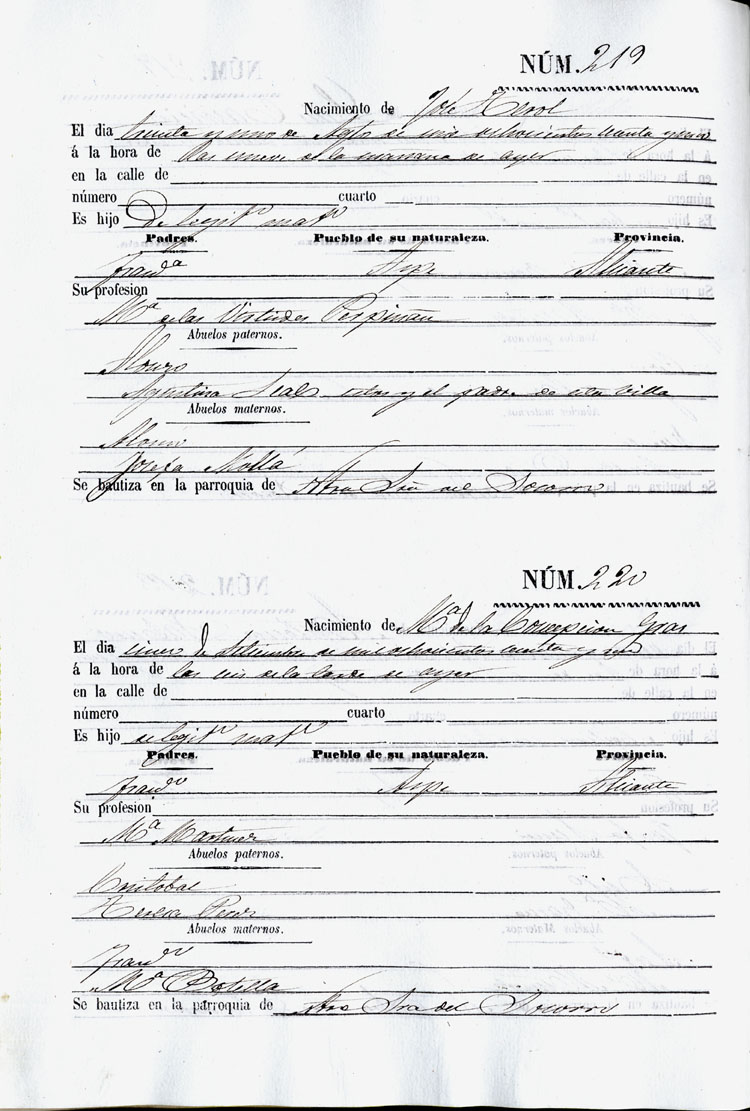 NÚM. 219
Nacimiento de José
El dia treinta y uno de Agto de mil ochocientos y
á la hora de las nueve de la mañana de ayer
en la calle de
número cuarto
Es hijo de legit.º mat.º
Padres. Pueblo de su naturaleza. Provincia.
Aspe Alicante
Su profesion
M.ª de las Virtudes Perpiñan
Abuelos paternos.
Alonzo
Agustina Leal estos y el padre de esta villa
Abuelos maternos.
Josefa Mollá
Se bautiza en la parroquia de Ntra Sra del Socorro
NÚM. 220
Nacimiento de M.ª de la Concepcion Gras
El dia cinco de Setiembre de mil ochocientos y
á la hora de las seis de la tarde de ayer
en la calle de
número cuarto
Es hijo de legit.º mat.º
Padres. Pueblo de su naturaleza. Provincia.
Fran.co Aspe Alicante
Su profesion
M.ª Martinez
Abuelos paternos.
Cristobal
Teresa
Abuelos maternos.
Fran.co
M.ª Botella
Se bautiza en la parroquia de Ntra Sra del Socorro